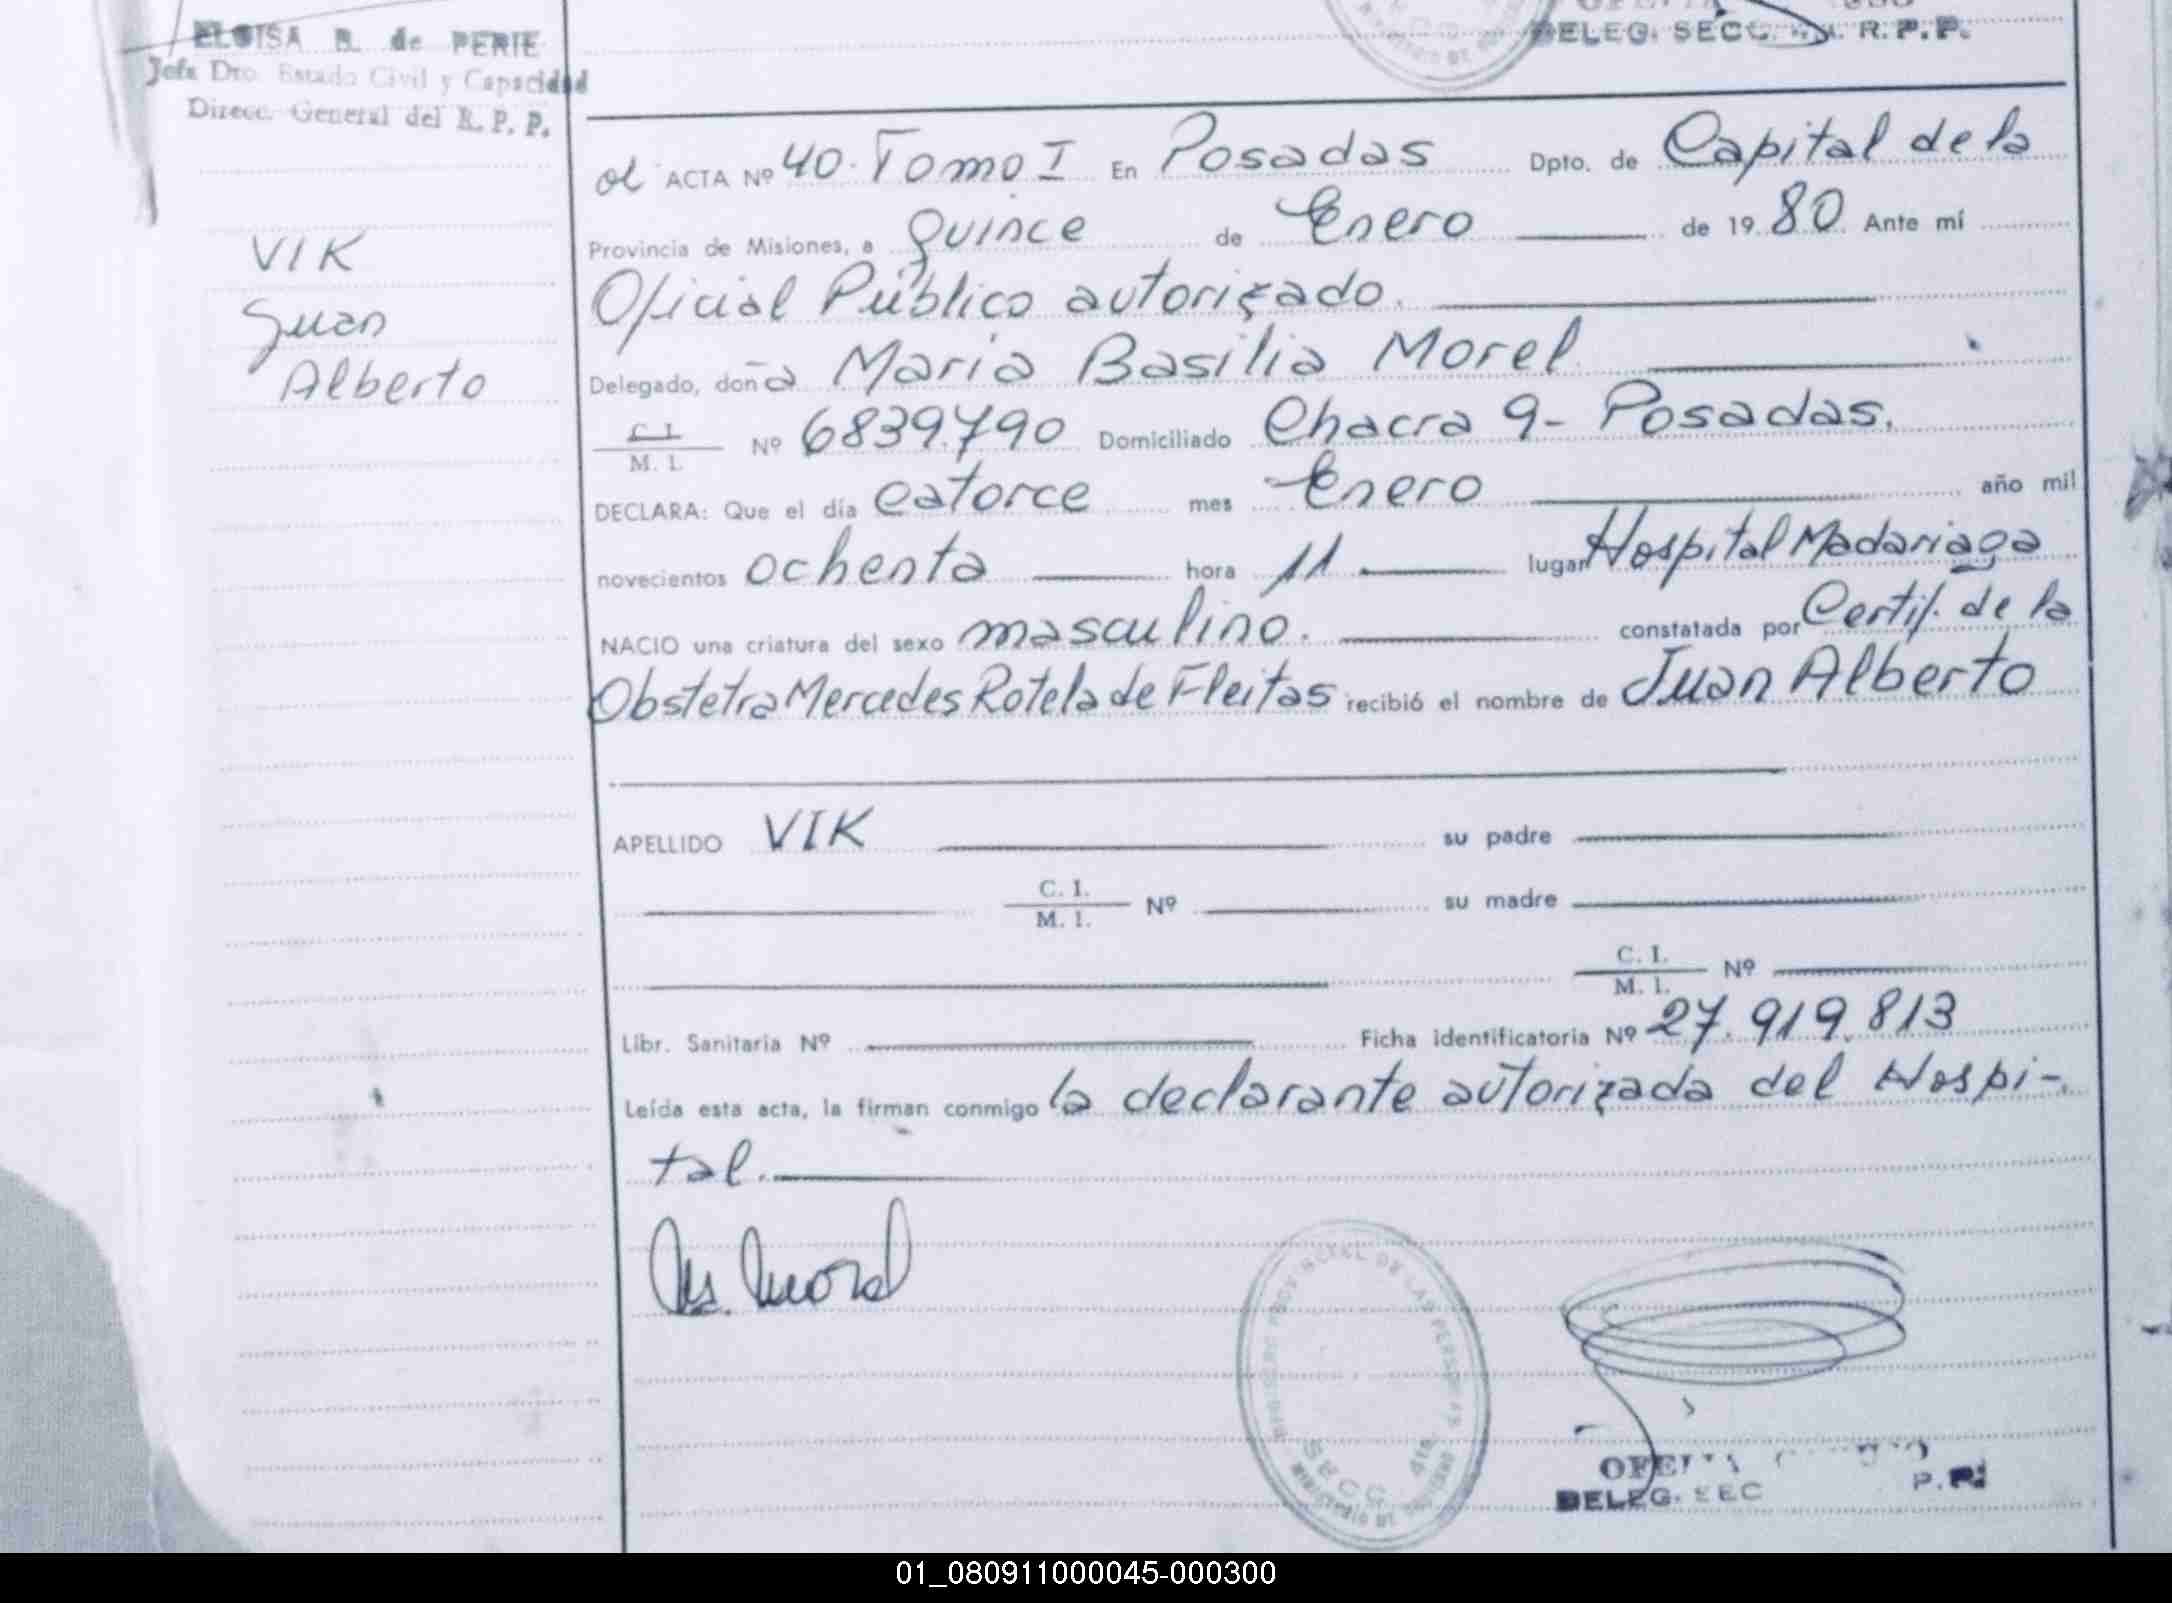 ELOISA B. de PERIE
Jefa Dro. Estado Civil y Capacidad
Direcc. General del R. P. P.
DELEG. SECC. R. P. P.
VIK
Juan
Alberto
ol ACTA Nº 40. Tomo I En Posadas Dpto. de Capital de la
Provincia de Misiones, a quince de Enero de 19 80 Ante mí
Oficial Público autorizado.
Delegado, doña Maria Basilia Morel
C. I.
M. I. Nº 6839.790 Domiciliado Chacra 9- Posadas.
DECLARA: Que el día catorce mes Enero año mil
novecientos ochenta hora 11 lugar Hospital Madariaga
NACIO una criatura del sexo masculino. constatada por Certif. de la
Obstetra Mercedes Rotela de Fleitas recibió el nombre de Juan Alberto
APELLIDO VIK su padre
C. I.
M. I. Nº su madre
C. I.
M. I. Nº
Libr. Sanitaria Nº Ficha identificatoria Nº 27.919.813
Leída esta acta, la firman conmigo la declarante autorizada del Hospi-
tal.
Ms. Morel
PROVINCIAL DE LAS PERSONAS
SECC. 4ta.
MINISTERIO DE GOBIERNO
DELEG. SEC P. P.
01_080911000045-000300